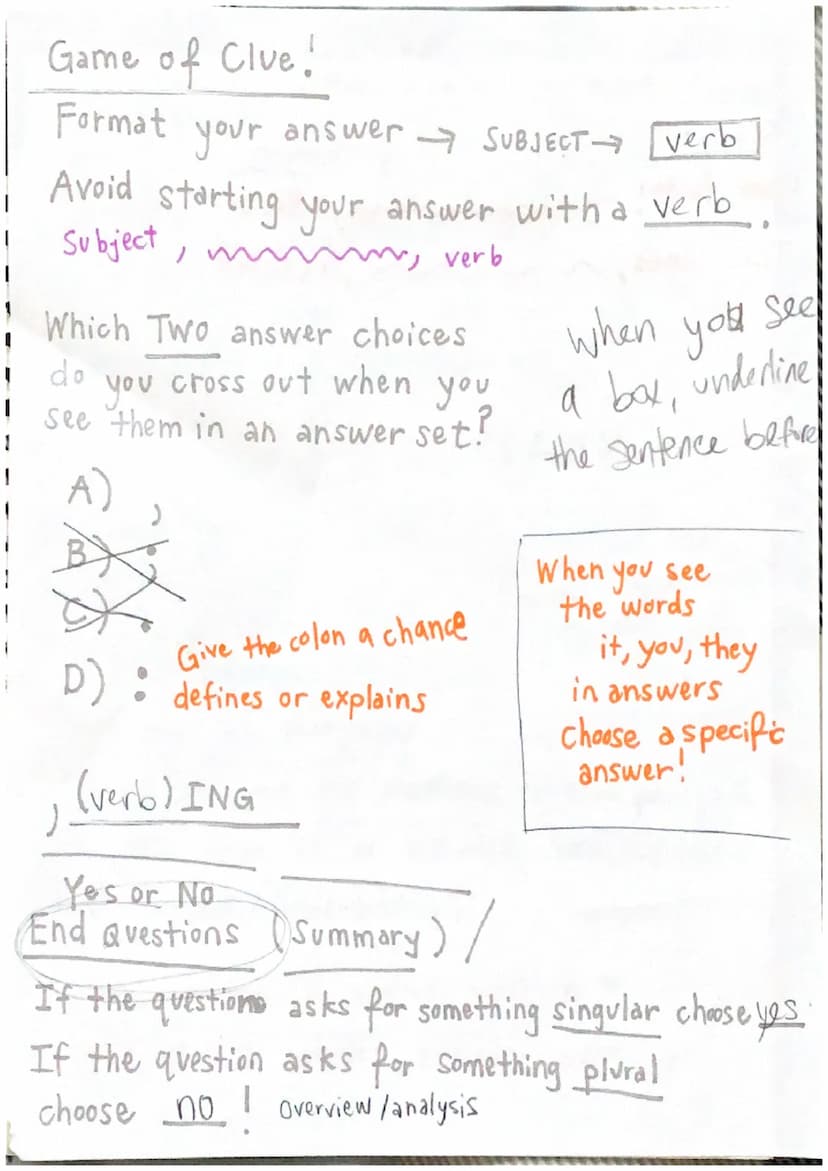 Game of Clue!
Format your answer → SUBJECT → verb
Avoid starting your answer with a verb.
Subject, , verb
Which Two answer choices
do you cross out when you
see them in an answer set?
When you see
a box, underline
the sentence before
A) ,
B) ;
C) .
D) :
Give the colon a chance
defines or explains
When you see
the words
it, you, they
in answers
Choose a specific
answer!
, (verb) ING
Yes or No
End Questions (Summary) /
If the questions asks for something singular choose yes
If the question asks for something plural
choose no! overview/analysis